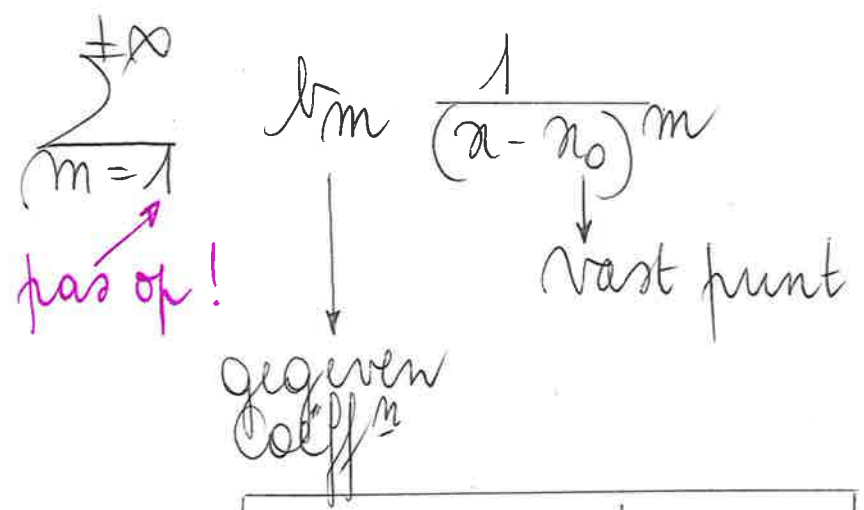 $\sum_{m=1}^{+\infty} b_m \frac{1}{(x-x_0)^m}$
pas op! vast punt
gegeven
coëff$^{\underline{n}}$